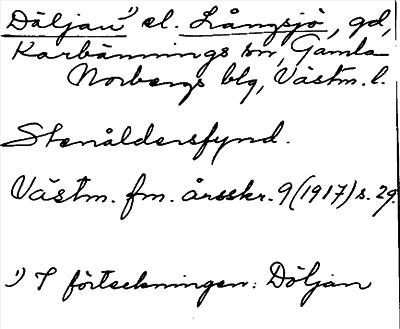 Däljan¹⁾ el. Långsjö, gd,
Karbännings sn, Gamla
Norbergs blg, Västm. l.
Stenåldersfynd.
Västm. fm. årsskr. 9 (1917) s. 29.
¹⁾ I förteckningen: Döljan